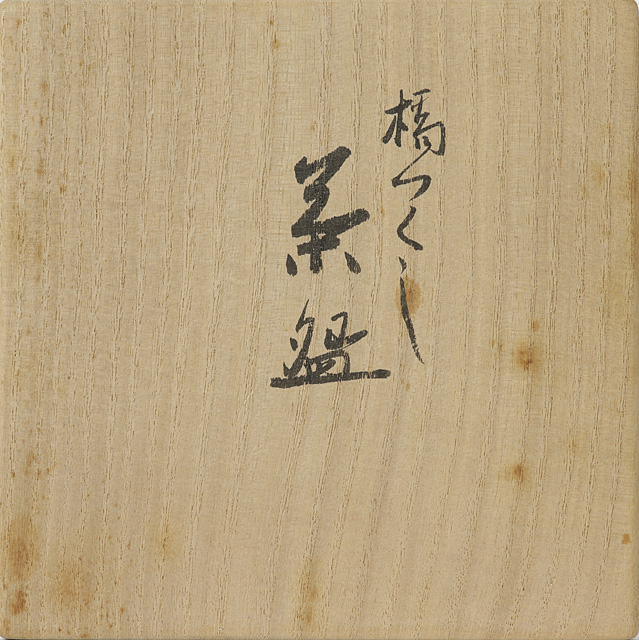 橋つくし
茶盌